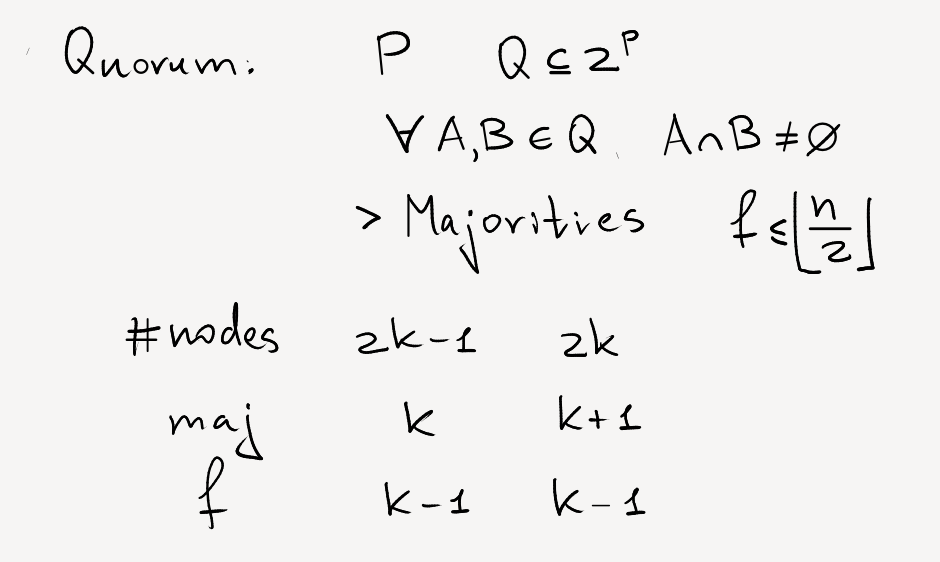 Quorum: P Q ⊆ 2^P
∀ A,B ∈ Q A∩B ≠ ∅
> Majorities f ≤ ⌊n/2⌋
#nodes 2k-1 2k
maj k k+1
f k-1 k-1